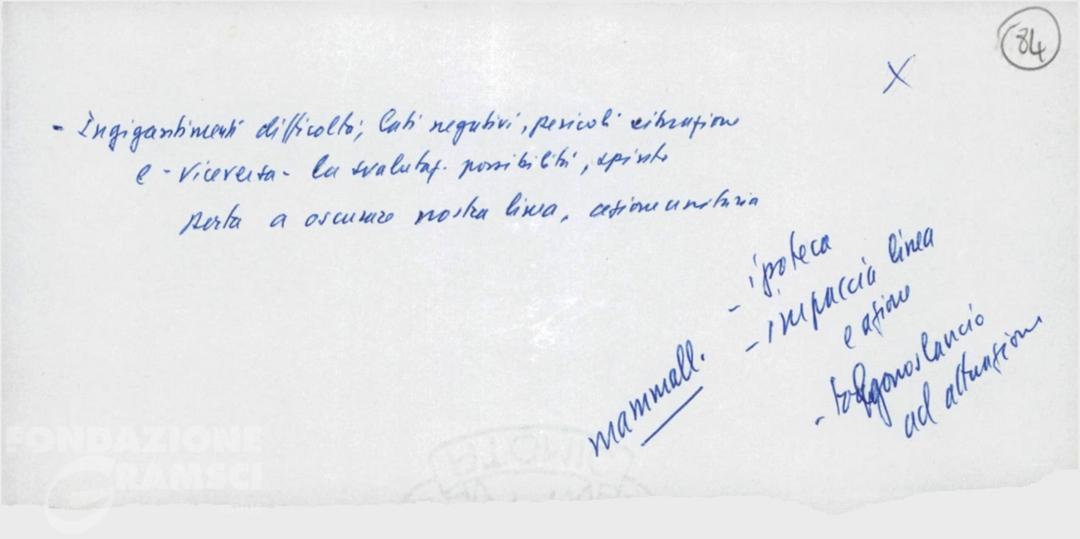 84
X
- Ingigantimenti difficoltà, lati negativi, pericoli situazione
e - viceversa - la svalutaz. possibilità, spinte
porta a oscurare nostra linea, azione unitaria
mammall.
- ipoteca
- impaccia linea
e azione
- tolgono slancio
ad attuazione
FONDAZIONE
GRAMSCI